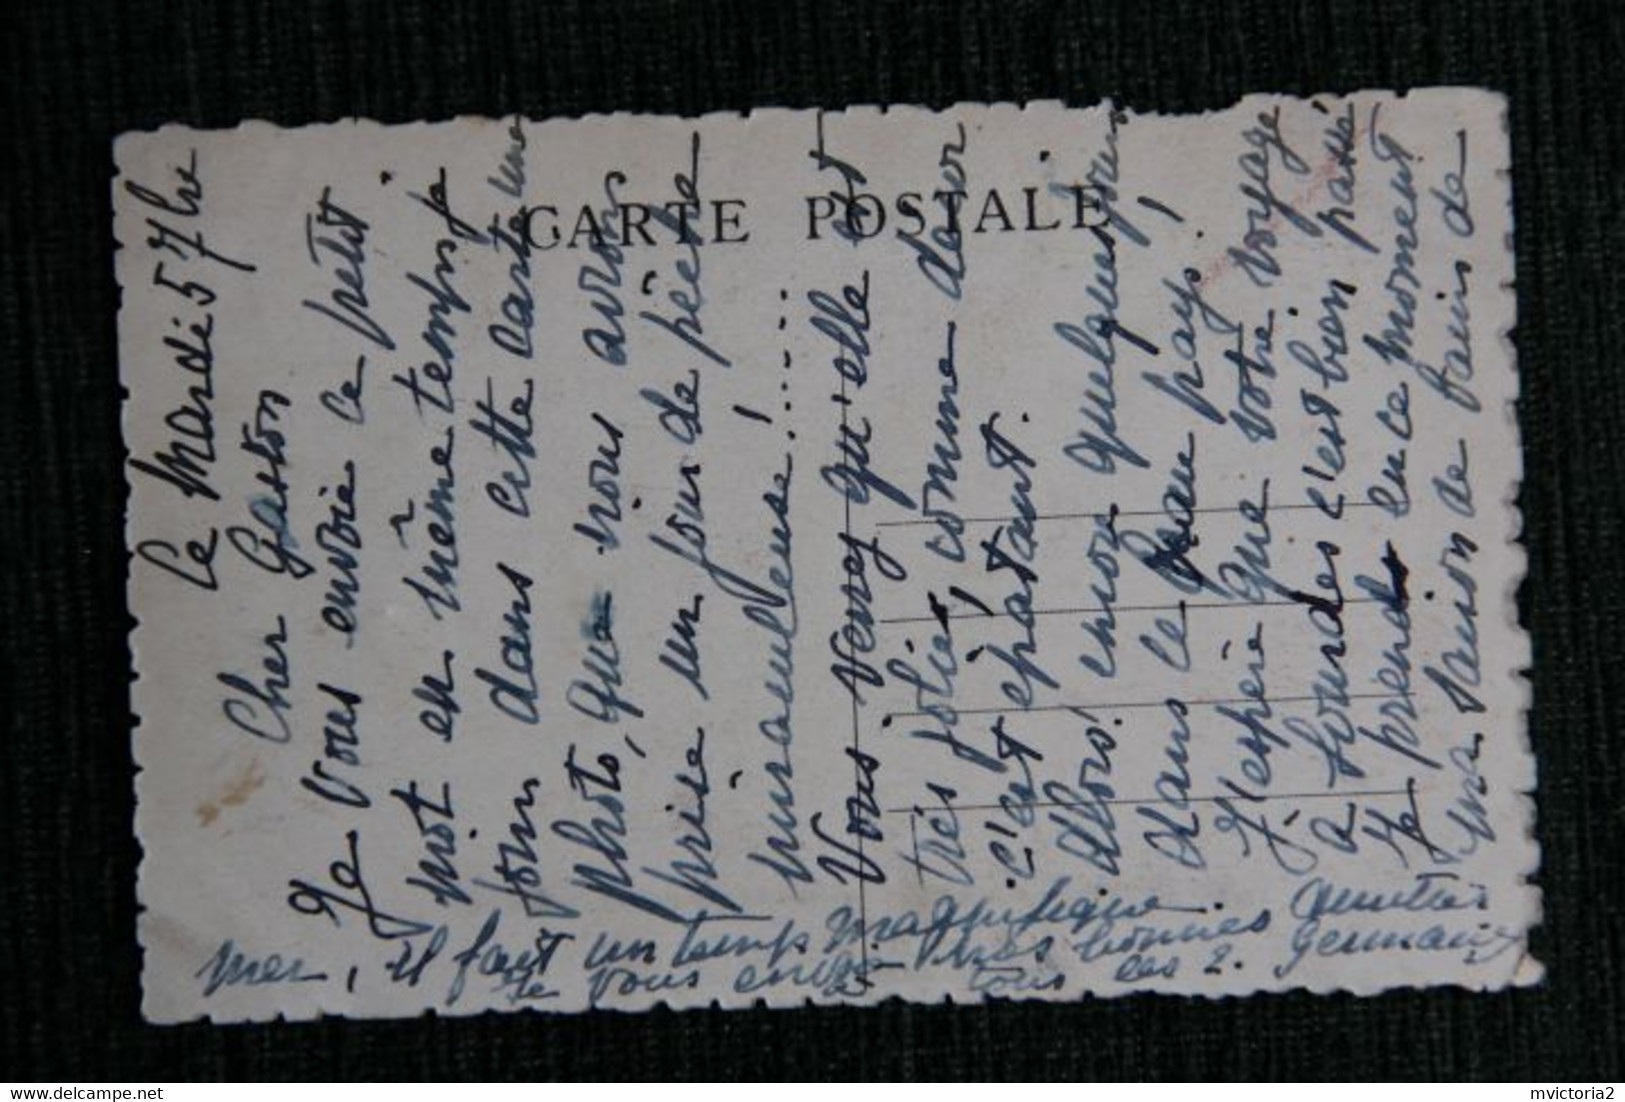 CARTE POSTALE
Le Mardi 5 7bre
Cher Gaston
Je vous envoie ce petit
mot en même temps je
joins dans cette carte une
photo, que nous avons
prise un jour de pêche
miraculeuse!.....
Vous verrez qu'elle est
très jolie, comme décor
c'est épatant.
Alors! encore quelques jours
dans le beau pays!
J'espère que votre voyage
à Lourdes s'est bien passé
Je prends en ce moment
ma saison de bains de
mer, il fait un temps magnifique.
Je vous envoie mes bonnes amitiés
à tous les 2. Germaine
mvictoria2